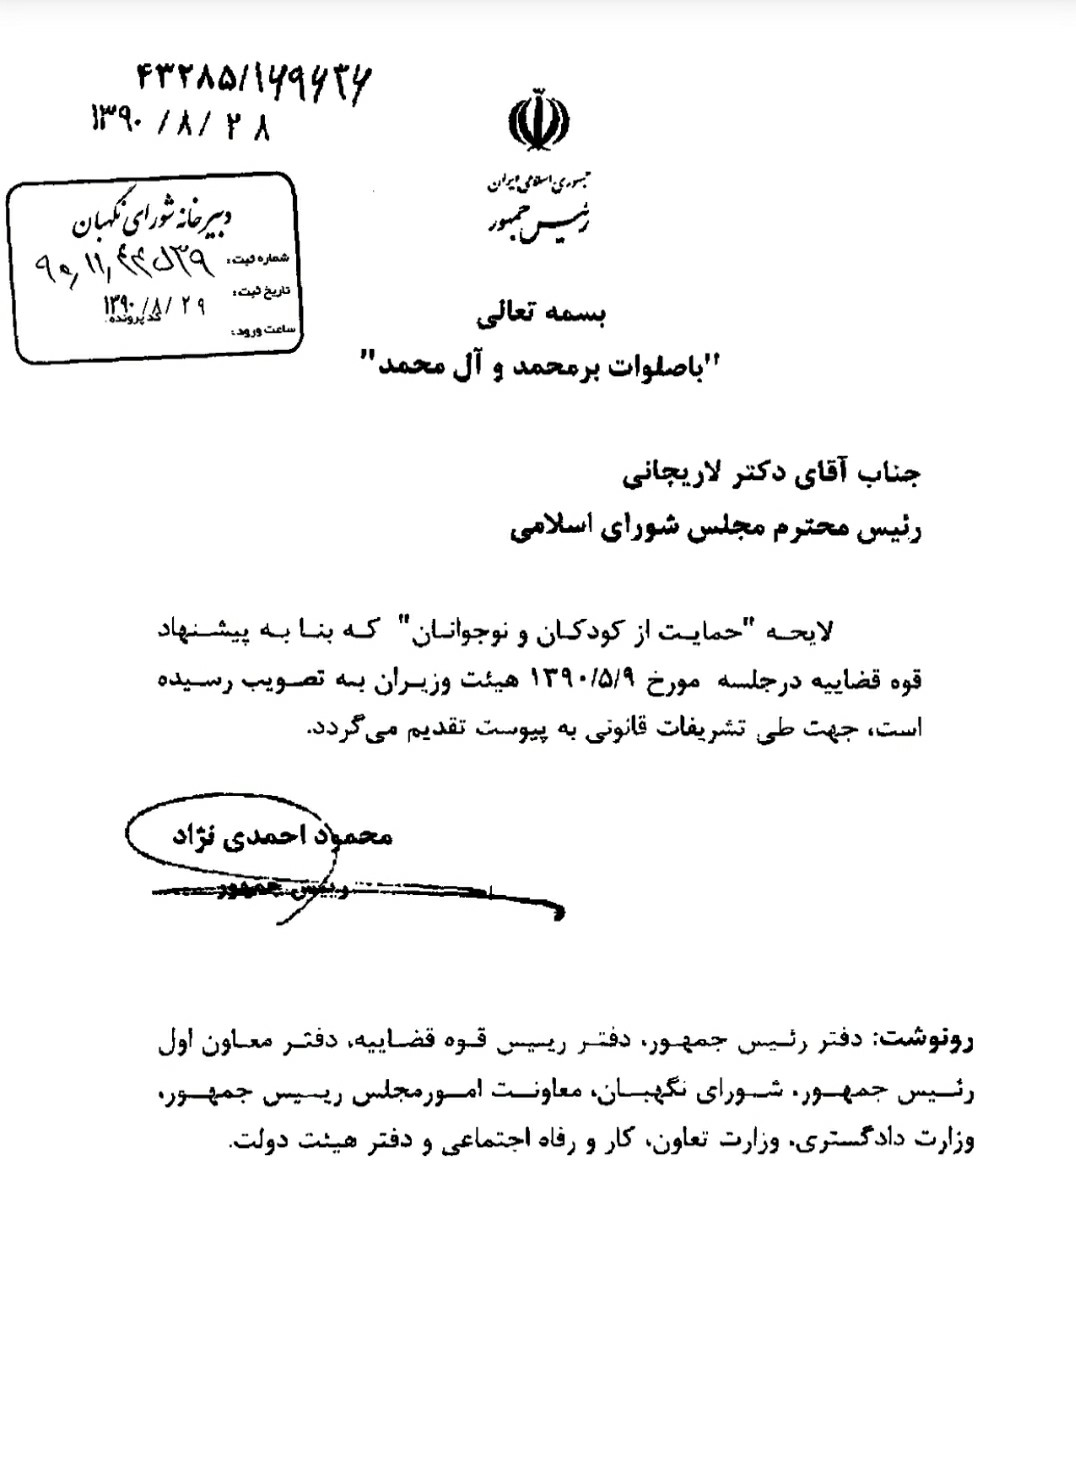 ۴۳۲۸۵/۱۶۹۶۳۶
۱۳۹۰/۸/۲۸
جمهوری اسلامی ایران
رئیس جمهور
دبیرخانه شورای نگهبان
شماره ثبت:
تاریخ ثبت: ۱۳۹۰/۸/۲۹
کد پرونده:
ساعت ورود:
بسمه تعالی
"باصلوات برمحمد و آل محمد"
جناب آقای دکتر لاریجانی
رئیس محترم مجلس شورای اسلامی
لایحه "حمایت از کودکان و نوجوانان" که بنا به پیشنهاد
قوه قضاییه درجلسه مورخ ۱۳۹۰/۵/۹ هیئت وزیران به تصویب رسیده
است، جهت طی تشریفات قانونی به پیوست تقدیم می‌گردد.
محمود احمدی نژاد
رییس جمهور
رونوشت: دفتر رئیس جمهور، دفتر رییس قوه قضاییه، دفتر معاون اول
رئیس جمهور، شورای نگهبان، معاونت امورمجلس رییس جمهور،
وزارت دادگستری، وزارت تعاون، کار و رفاه اجتماعی و دفتر هیئت دولت.